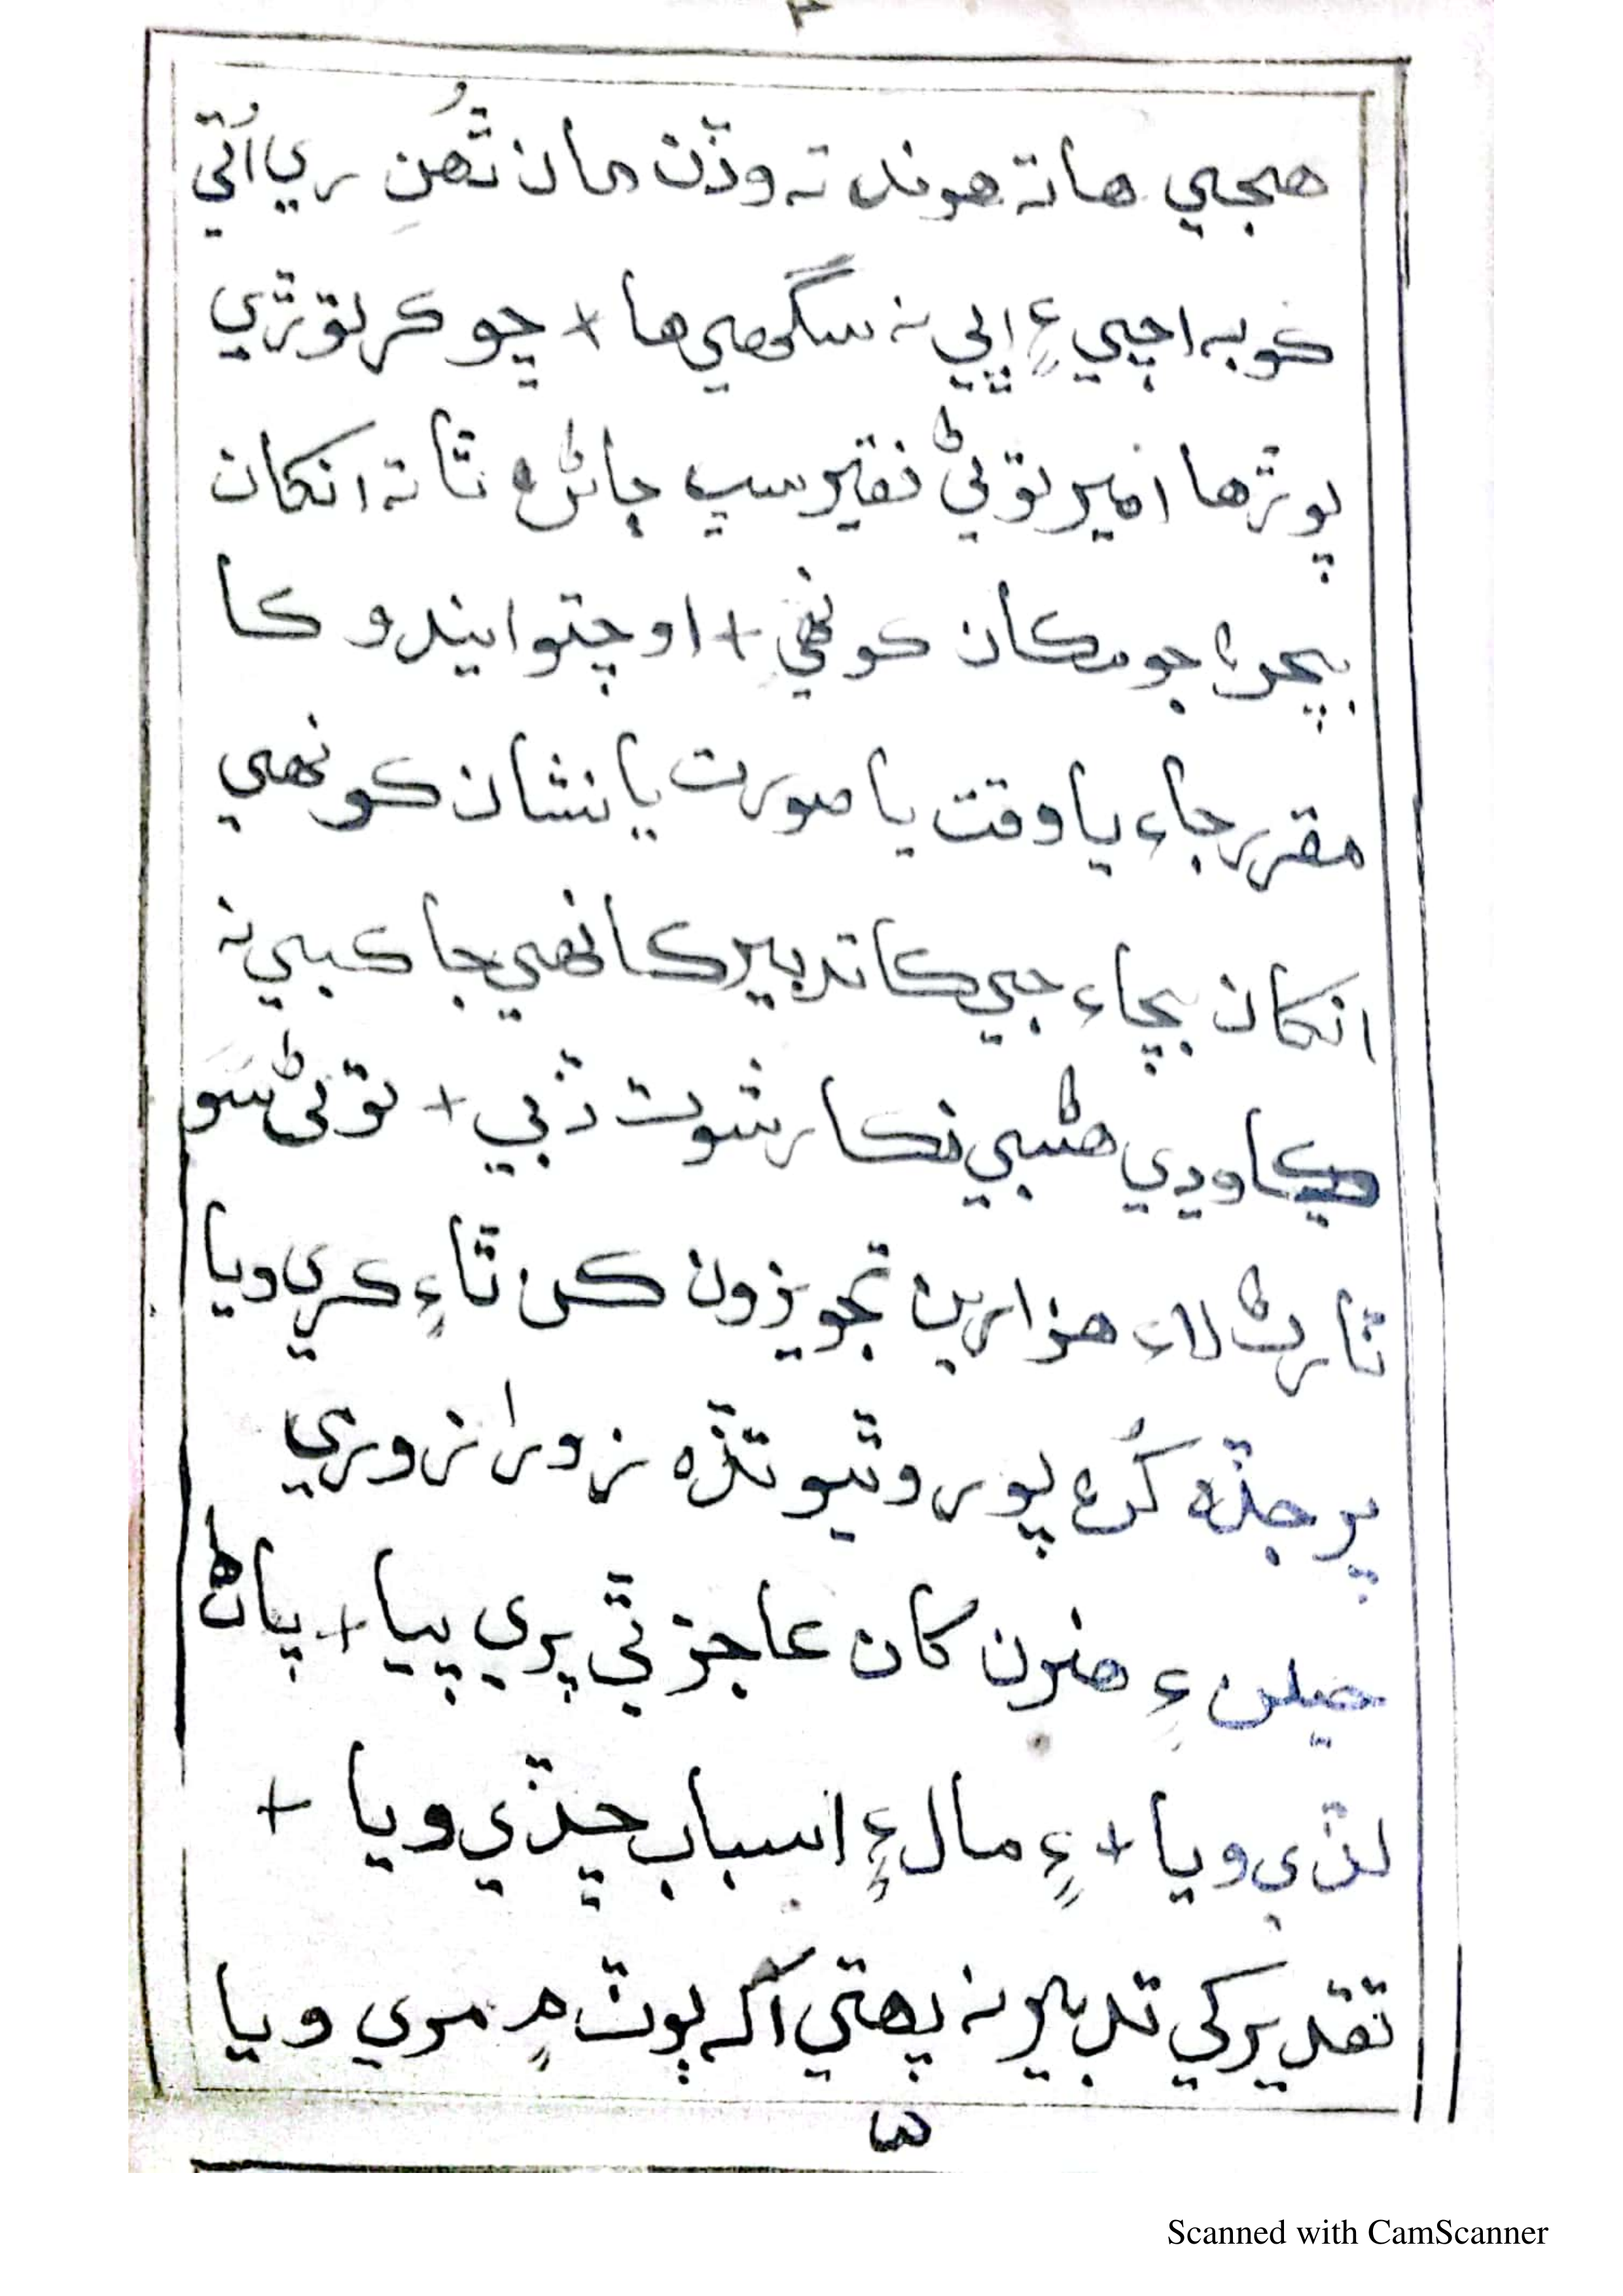 هجي ها ته هوند ته وڏن مان ٿُهن ري اُتي
ڪو به اچي ۽ اپي نه سگهي ها + ڇو ڪر توڙي
پوڙها امير توڻي فقير سڀ ڄاڻن ٿا ته انکان
بچڻ جو مڪان ڪو نهي + اوچتو ايندو ڪا
مقرر جاء يا وقت يا صورت يا نشان ڪو نهي
انکان بچاء جي ڪا تدبير ڪا نهي جا ڪبي نه
ڪا ودي هڻبي نڪا رشوت ڏبي + توڻي سَو
ٿا رڻ لاء هزارين تجويزون ڪن ٿا ۽ ڪري ويا
پر جڏه ڪُن پور وٿيو تڏه زورا زوري
حيلن ۽ هنرن کان عاجز ٿي پري پيا + پاڻ
لڏي ويا + ۽ مال ۽ اسباب ڇڏي ويا +
تقدير کي تدبير نه پهتي اگه پوٺ ۾ مري ويا
Scanned with CamScanner